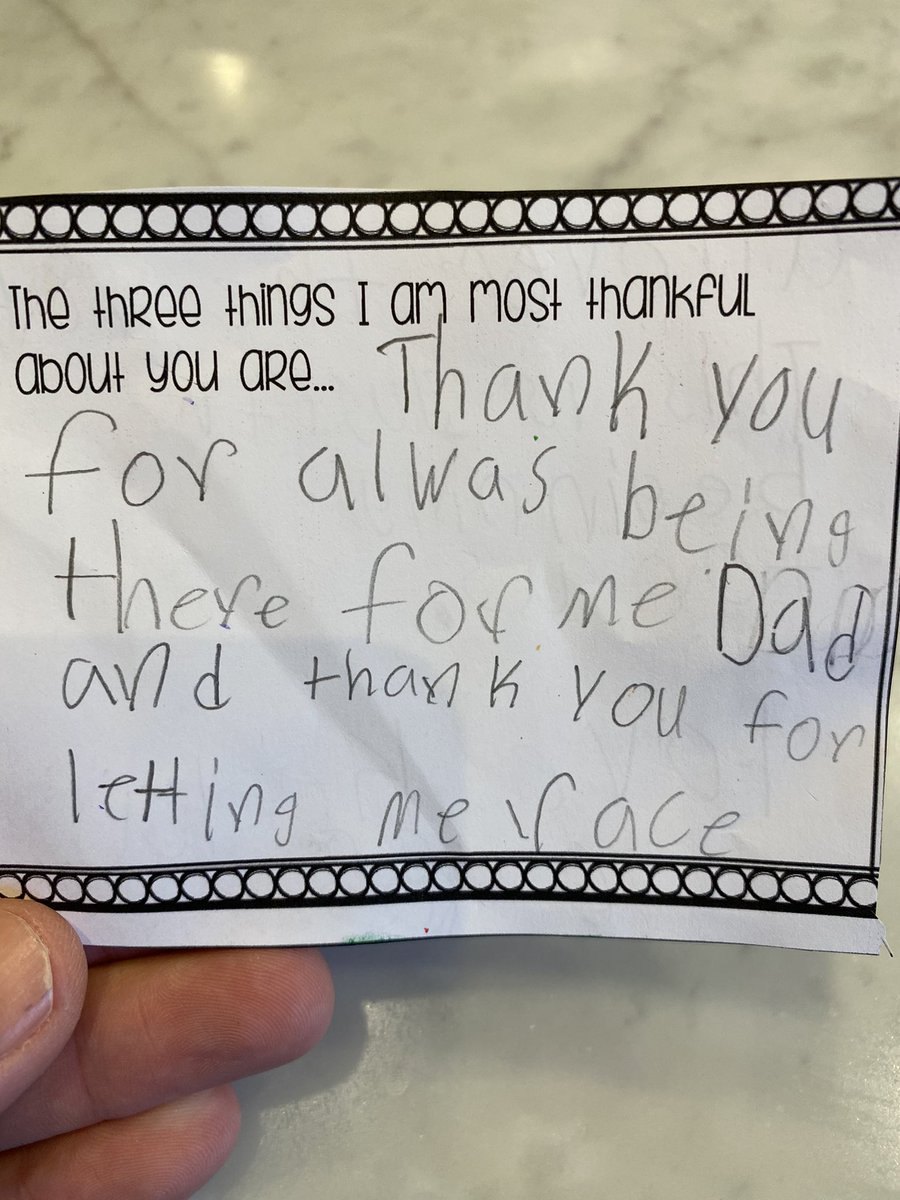 The three things I am most thankful
about you are... Thank you
for alwas being
there for me Dad
and thank you for
letting me race